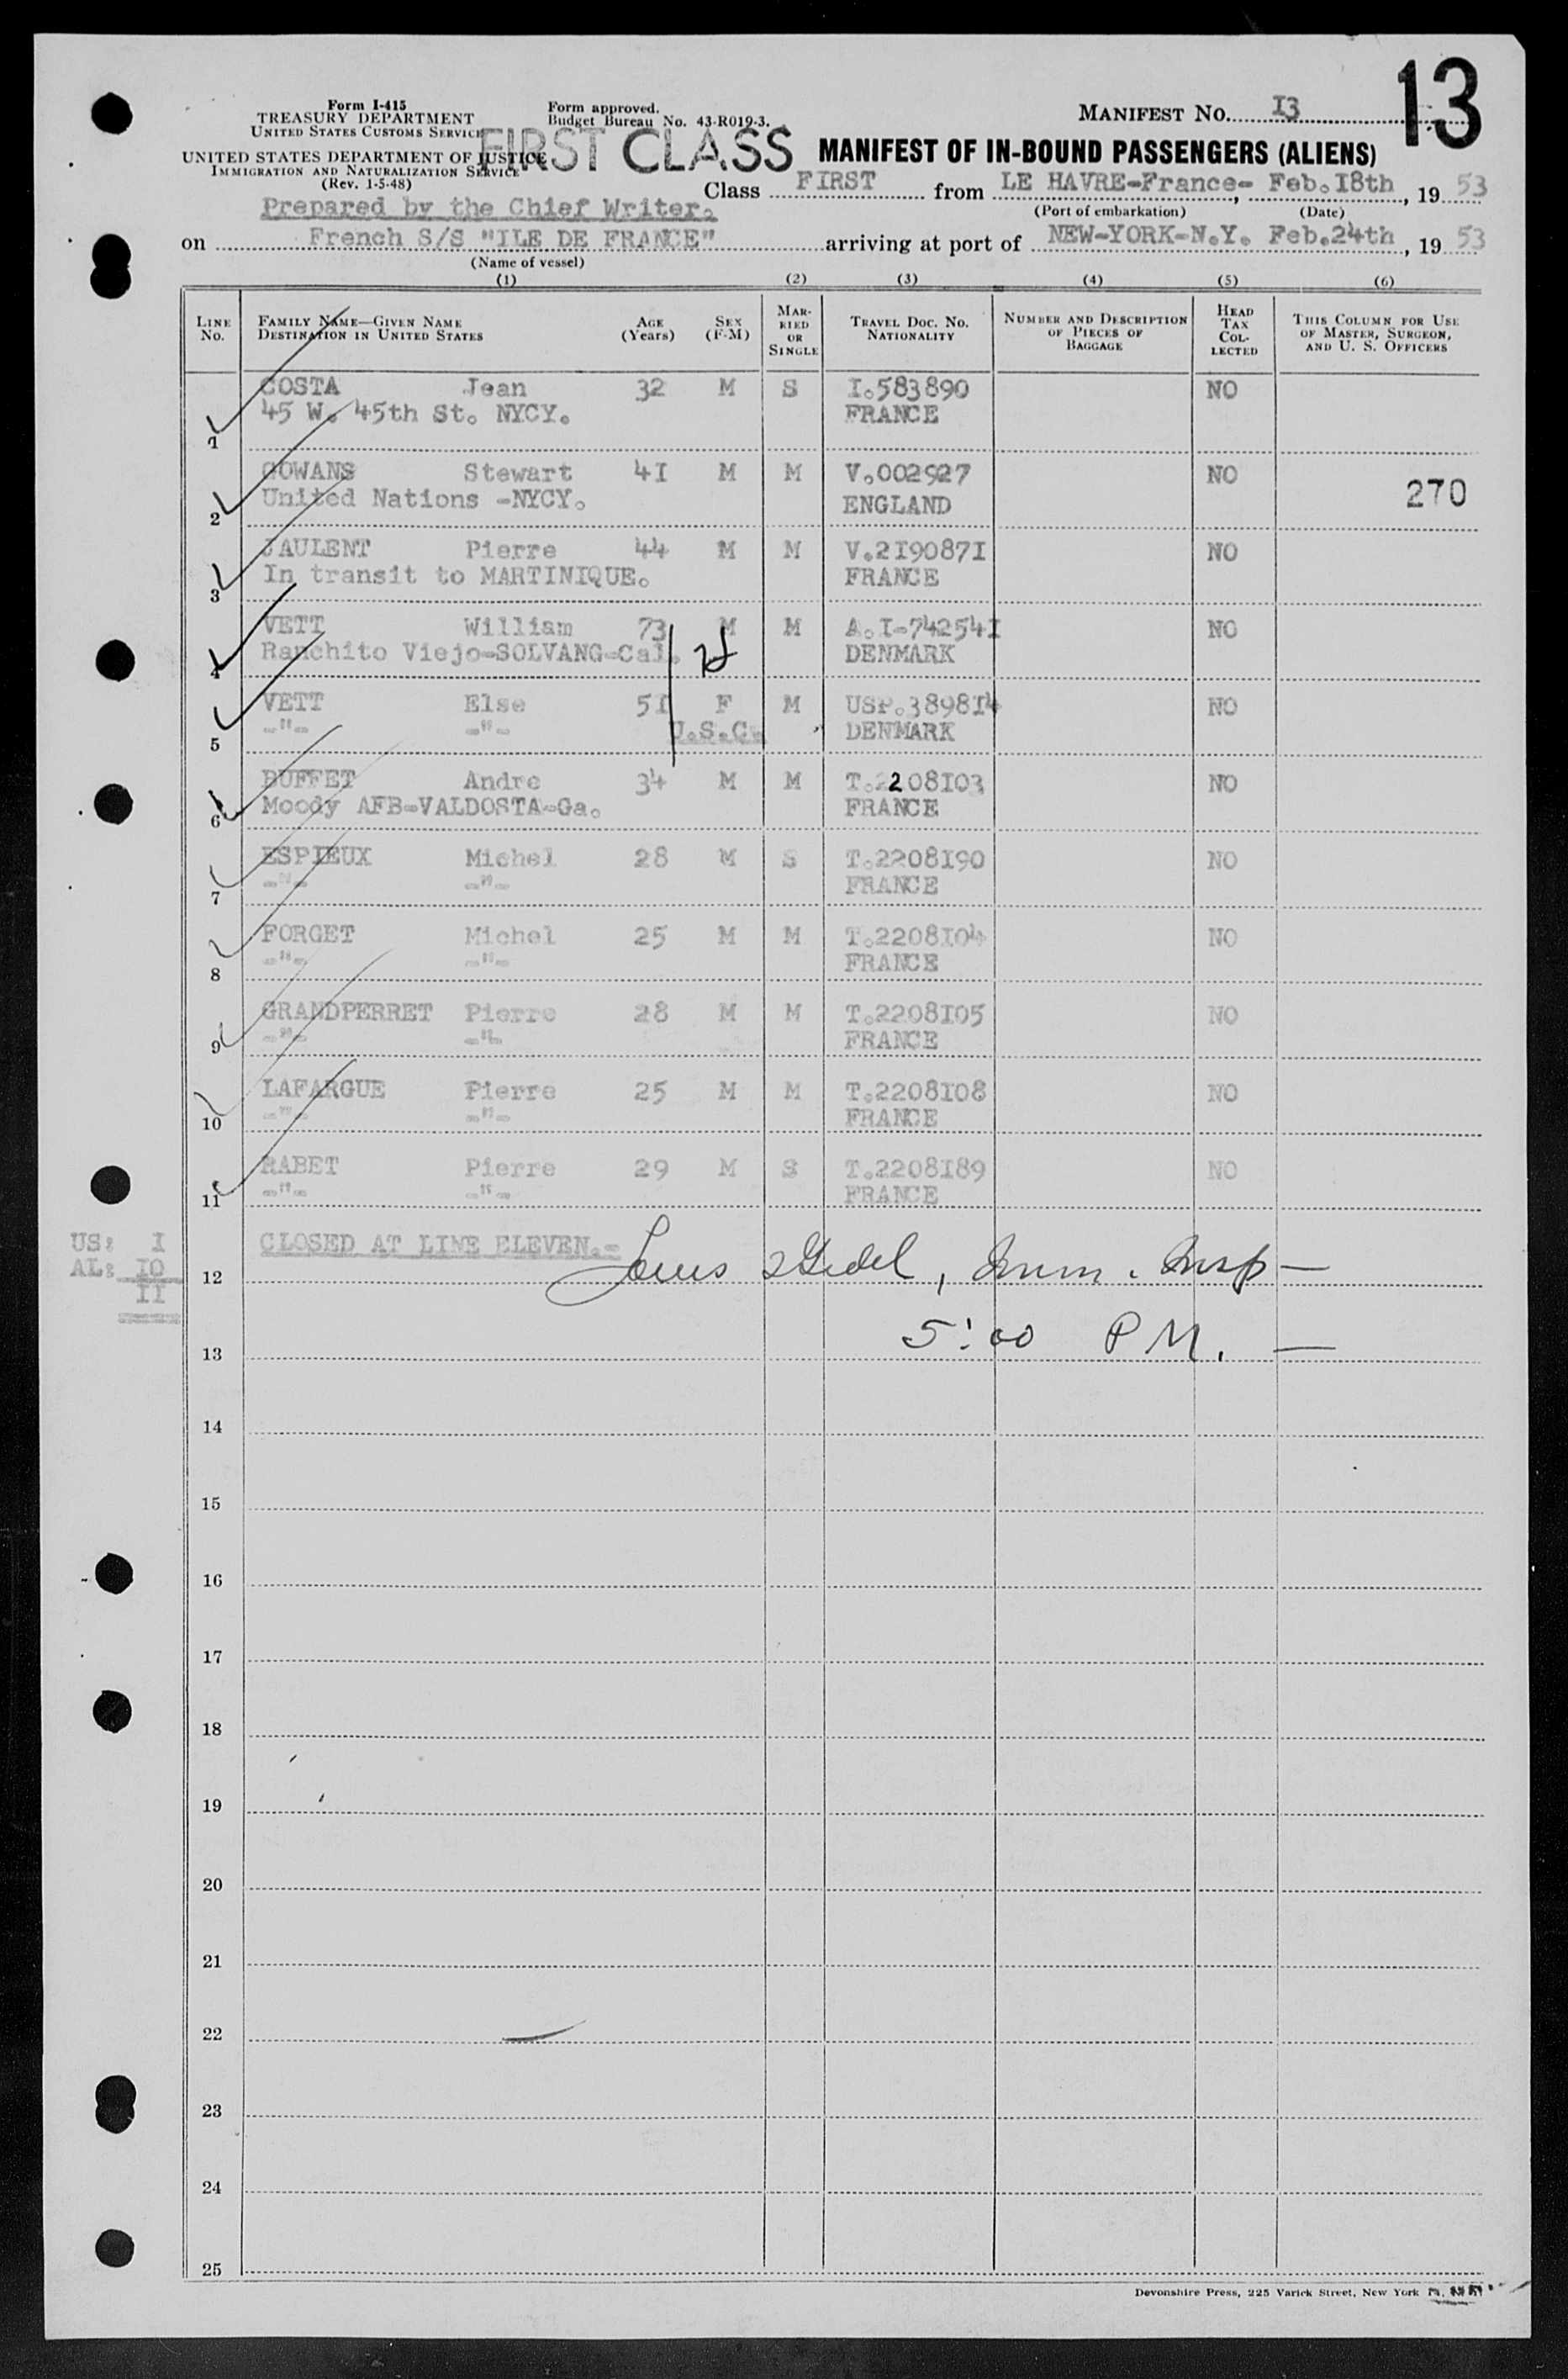 13
Form I-415
TREASURY DEPARTMENT
UNITED STATES CUSTOMS SERVICE
Form approved.
Budget Bureau No. 43-R019-3.
MANIFEST NO. I3
UNITED STATES DEPARTMENT OF JUSTICE
IMMIGRATION AND NATURALIZATION SERVICE
(Rev. 1-5-48)
FIRST CLASS
MANIFEST OF IN-BOUND PASSENGERS (ALIENS)
Class FIRST from LE HAVRE-France- Feb.I8th, 19 53
(Port of embarkation) (Date)
Prepared by the Chief Writer.
on French S/S "ILE DE FRANCE" arriving at port of NEW-YORK-N.Y. Feb.24th, 19 53
(Name of vessel)
(1) (2) (3) (4) (5) (6)
LINE No.
FAMILY NAME—GIVEN NAME
DESTINATION IN UNITED STATES
AGE (Years)
SEX (F-M)
MARRIED OR SINGLE
TRAVEL DOC. NO. NATIONALITY
NUMBER AND DESCRIPTION OF PIECES OF BAGGAGE
HEAD TAX COLLECTED
THIS COLUMN FOR USE OF MASTER, SURGEON, AND U. S. OFFICERS
COSTA Jean 32 M S I.583890 NO
1 45 W. 45th St. NYCY. FRANCE
GOWANS Stewart 4I M M V.002927 NO
2 United Nations -NYCY. ENGLAND 270
JAULENT Pierre 44 M M V.2I9087I NO
3 In transit to MARTINIQUE. FRANCE
VETT William 73 M M A.I-74254I NO
4 Ranchito Viejo-SOLVANG-Cal. DENMARK
VETT Else 5I F M USP.3898I4 NO
5 -"- -"- U.S.C. DENMARK
BUFFET Andre 34 M M T.2208I03 NO
6 Moody AFB-VALDOSTA-Ga. FRANCE
ESPIEUX Michel 28 M S T.2208I90 NO
7 -"- -"- FRANCE
FORGET Michel 25 M M T.2208I04 NO
8 -"- -"- FRANCE
GRANDPERRET Pierre 28 M M T.2208I05 NO
9 -"- -"- FRANCE
LAFARGUE Pierre 25 M M T.2208I08 NO
10 -"- -"- FRANCE
RABET Pierre 29 M S T.2208I89 NO
11 -"- -"- FRANCE
US: I
AL: I0
II
12 CLOSED AT LINE ELEVEN.- Louis , Imm. Insp —
13 5:00 P M. —
14
15
16
17
18
19
20
21
22
23
24
25
Devonshire Press, 225 Varick Street, New York